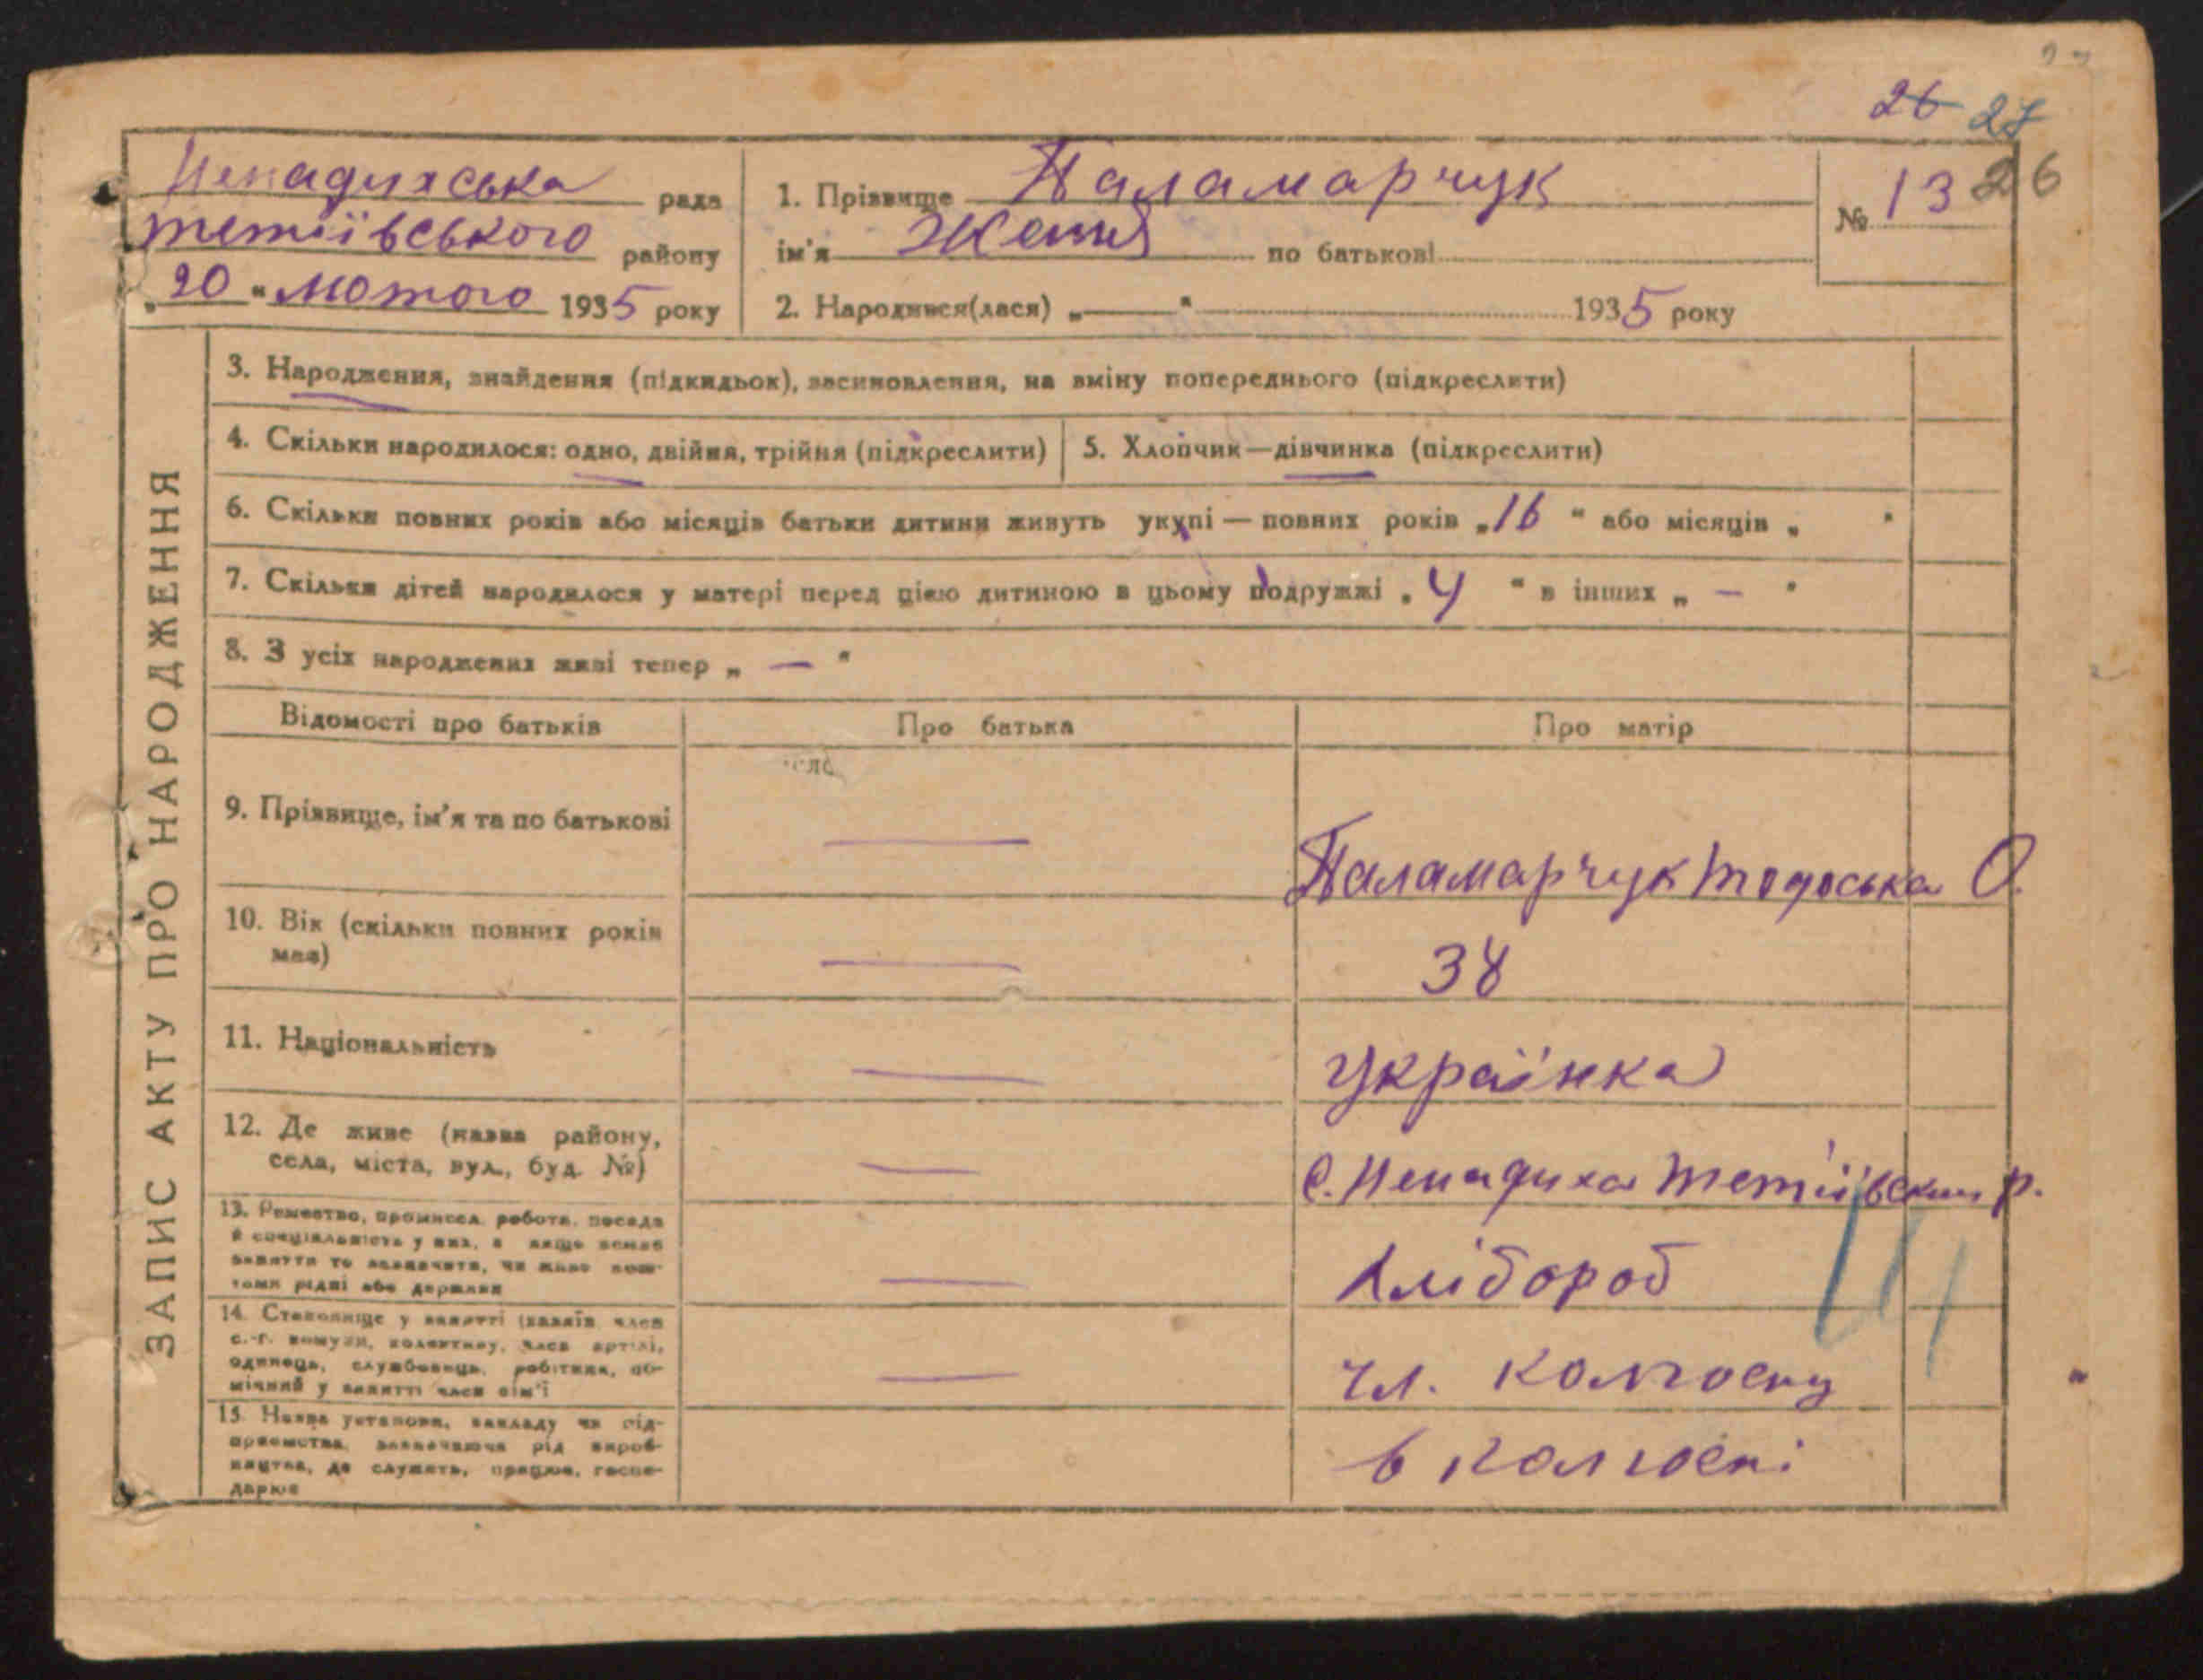 26 27
Ненадихська рада
1. Прізвище Паламарчук
№ 13 26
тетіївського району
ім'я Женя по батькові
"20" лютого 1935 року
2. Народився(лася) „—" 1935 року
ЗАПИС АКТУ ПРО НАРОДЖЕННЯ
3. Народження, знайдення (підкидьок), засиновлення, на зміну попереднього (підкреслити)
4. Скільки народилося: одно, двійня, трійня (підкреслити)
5. Хлопчик—дівчинка (підкреслити)
6. Скільки повних років або місяців батьки дитини живуть укупі — повних років „16" або місяців „ "
7. Скільки дітей народилося у матері перед цією дитиною в цьому подружжі „4" в інших „—"
8. З усіх народжених живі тепер „—"
Відомості про батьків
Про батька
Про матір
9. Прізвище, ім'я та по батькові
—
Паламарчук Тодоська О.
10. Вік (скільки повних років
має)
—
38
11. Національність
—
Українка
12. Де живе (назва району,
села, міста, вул., буд. №)
—
С. Ненадиха Тетіївськ р.
13. Ремество, промисел, робота, посада
й спеціальність у них, а якщо немає
заняття то зазначити, чи живе кош-
тами рідні або держави
—
Хлібороб
14. Становище у занятті (хазяїн, член
с.-г. комуни, колективу, член артілі,
одинець, службовець, робітник, по-
мічний у занятті член сім'ї
—
чл. колгоспу
15. Назва установи, закладу чи під-
приємства, зазначаючи рід вироб-
ництва, де служить, працює, госпо-
дарює
в колгоспі